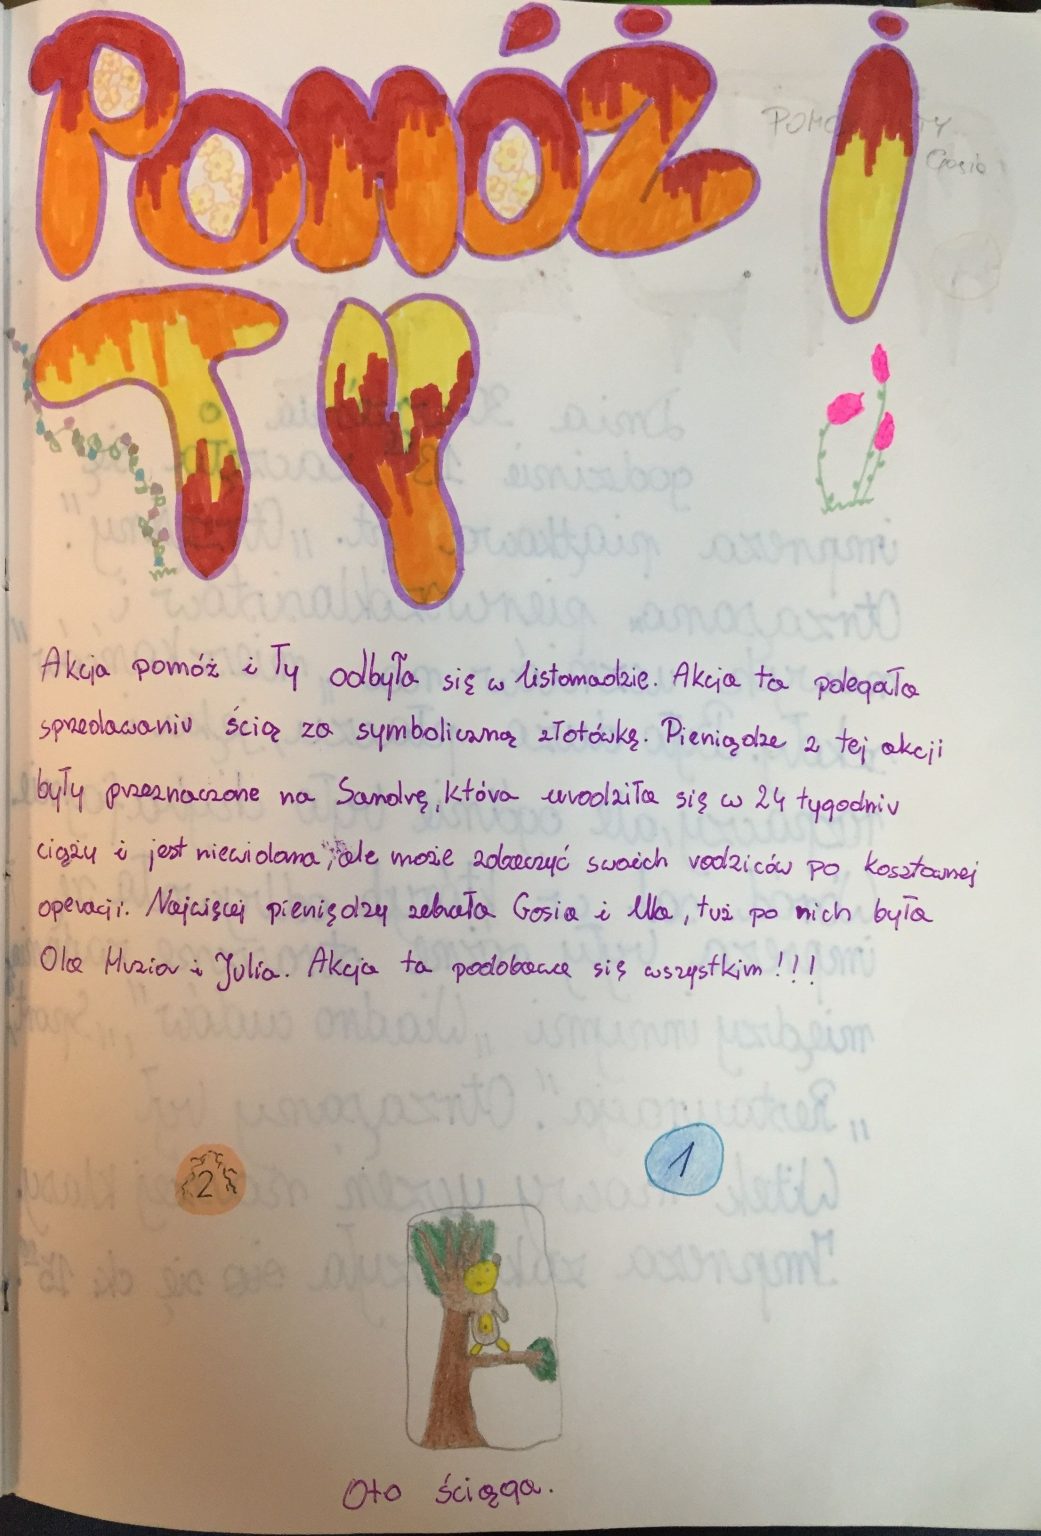 POMÓŻ i
TY
Gosia
Akcja pomóż i Ty odbyła się w listomadzie. Akcja ta polegała
sprzedawaniu ściąg za symboliczną złotówkę. Pieniądze z tej akcji
były przeznaczone na Sandrę, która urodziła się w 24 tygodniu
ciąży i jest niewidoma, ale może zobaczyć swoich rodziców po kosztownej
operacji. Najwięcej pieniędzy zebrała Gosia i Ula, tuż po nich była
Ola Muzia i Julia. Akcja ta podoba się wszystkim!!!
2
1
Oto ściąga.